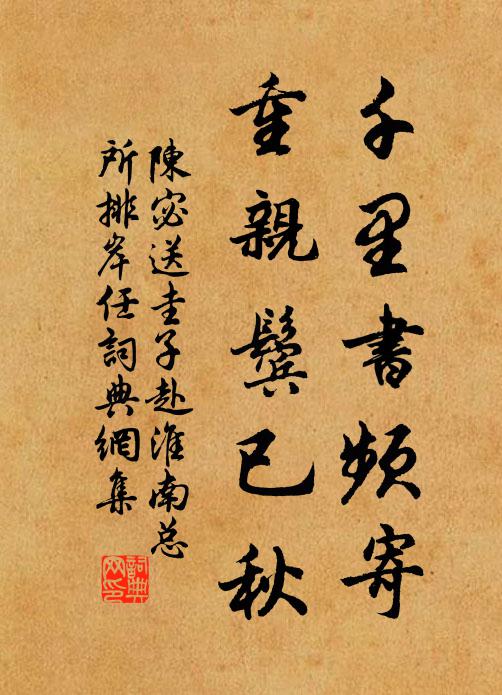 千里書頻寄
重親鬢已秋
陳宓送圭子赴淮南总
所排岸任詞典網集
詞典网印